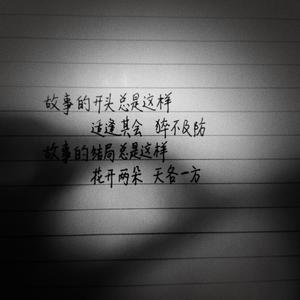 故事的开头总是这样
适逢其会 猝不及防
故事的结局总是这样
花开两朵 天各一方